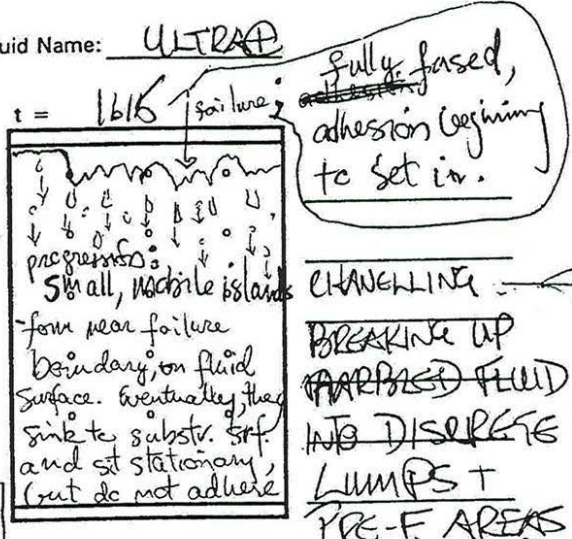 uid Name: ULTRA+
t = 1616
failure
fully fused,
adhesion beginning
to set in.
progression:
Small, mobile islands
form near failure
boundary, on fluid
surface. Eventually, they
sink to substr. srf.
and sit stationary,
but do not adhere
CHANELLING
BREAKING UP
MARBLED FLUID
INTO DISCRETE
LUMPS +
PRE-F. AREAS